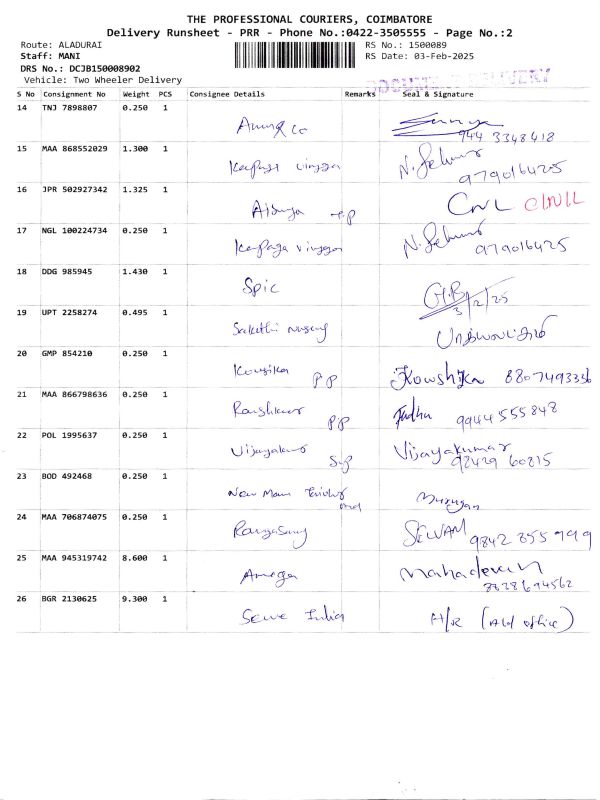 THE PROFESSIONAL COURIERS, COIMBATORE
Delivery Runsheet - PRR - Phone No.:0422-3505555 - Page No.:2
Route: ALADURAI RS No.: 1500089
Staff: MANI RS Date: 03-Feb-2025
DRS No.: DCJB150008902
Vehicle: Two Wheeler Delivery
S No Consignment No Weight PCS Consignee Details Remarks Seal & Signature
14 TNJ 7898807 0.250 1
944 3348418
15 MAA 868552029 1.300 1
979016425
16 JPR 502927342 1.325 1
CNL
17 NGL 100224734 0.250 1
979016425
18 DDG 985945 1.430 1 Spic G.B
3/2/25
19 UPT 2258274 0.495 1 Sakthi
20 GMP 854210 0.250 1 Kousika PP Kowshika 8807493356
21 MAA 866798636 0.250 1
9944555848
22 POL 1995637 0.250 1 Vijayakumar
92429 60815
23 BOD 492468 0.250 1 New Murugan
24 MAA 706874075 0.250 1 Rangasamy SELVAM 9842 355 999
25 MAA 945319742 8.600 1 Amega Mahadevan
8838694562
26 BGR 2130625 9.300 1 Seive India H/R (Abl office)